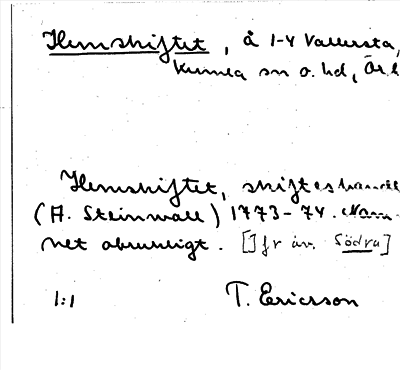 Hemskiftet, å 1-4 Vallersta,
Kumla sn o. hd, Ör
Hemskiftet, skifteshandl
(A. Steinwall) 1773-74. Nam-
net obrukligt. [Jfr äv. Södra]
1:1 T. Ericsson